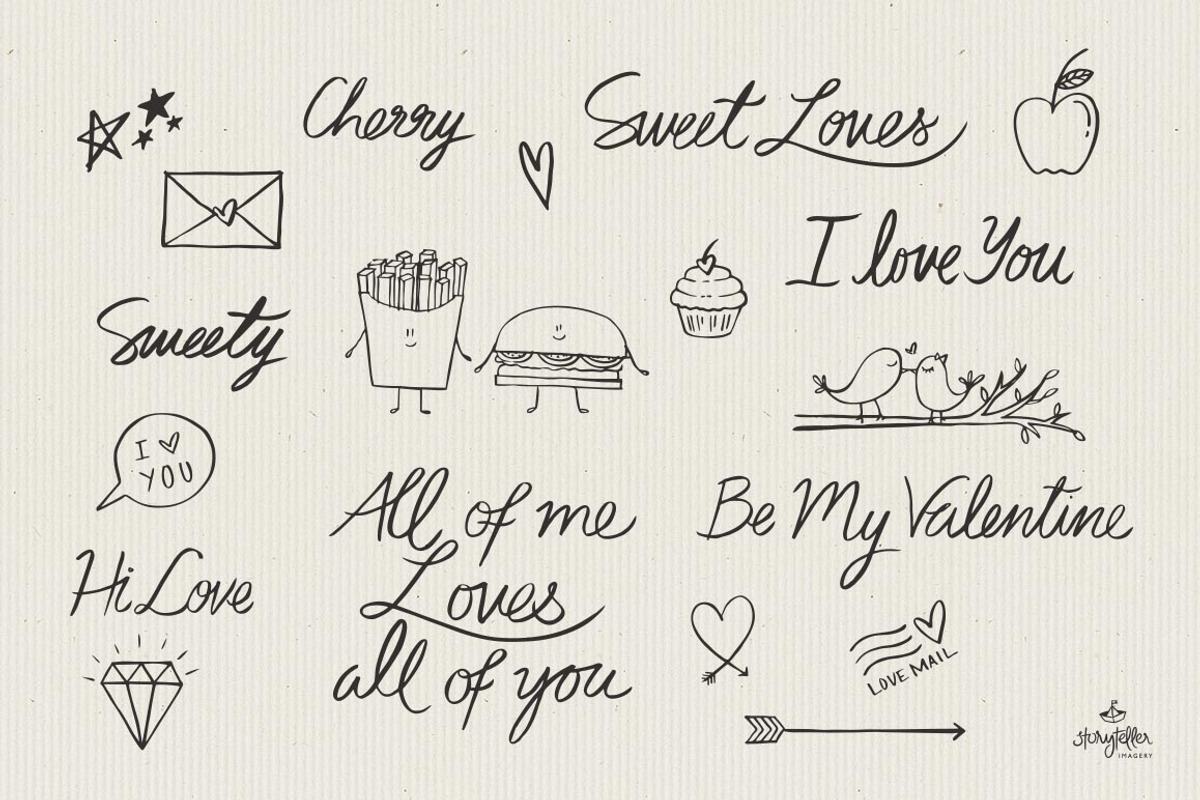 Cherry
Sweet Loves
I love You
Sweety
I ♡
YOU
All of me
Loves
all of you
Be My Valentine
Hi Love
LOVE MAIL
storyteller
IMAGERY